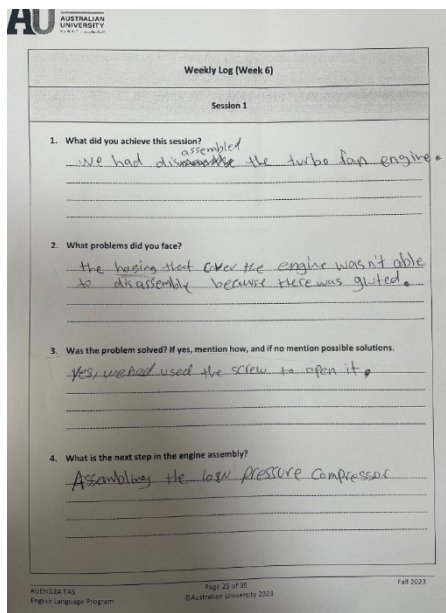 AU AUSTRALIAN
UNIVERSITY
Weekly Log (Week 6)
Session 1
1. What did you achieve this session?
assembled
we had dis the turbo fan engine.
2. What problems did you face?
the hasing that cover the engine wasn't able
to disassembly because there was gluted.
3. Was the problem solved? If yes, mention how, and if no mention possible solutions.
Yes, we had used the screw to open it.
4. What is the next step in the engine assembly?
Assambling the low pressure compressor
AUENGZA TAS
English Language Program
Page 25 of 35
©Australian University 2023
Fall 2023